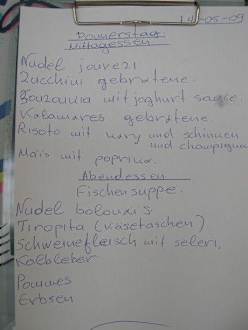 14-05-09
Donnerstag
Mittagessen
Nudel
Zucchini gebratene.
mit joghurt sauce
Kalamares gebratene
Risoto mit kary und schinken
und champignon
Mais mit paprika.
Abendessen
Fischensuppe.
Nudel
Tiropita (Käsetaschen)
Schweinefleisch mit seleri,
Kalbleber
Pommes
Erbsen